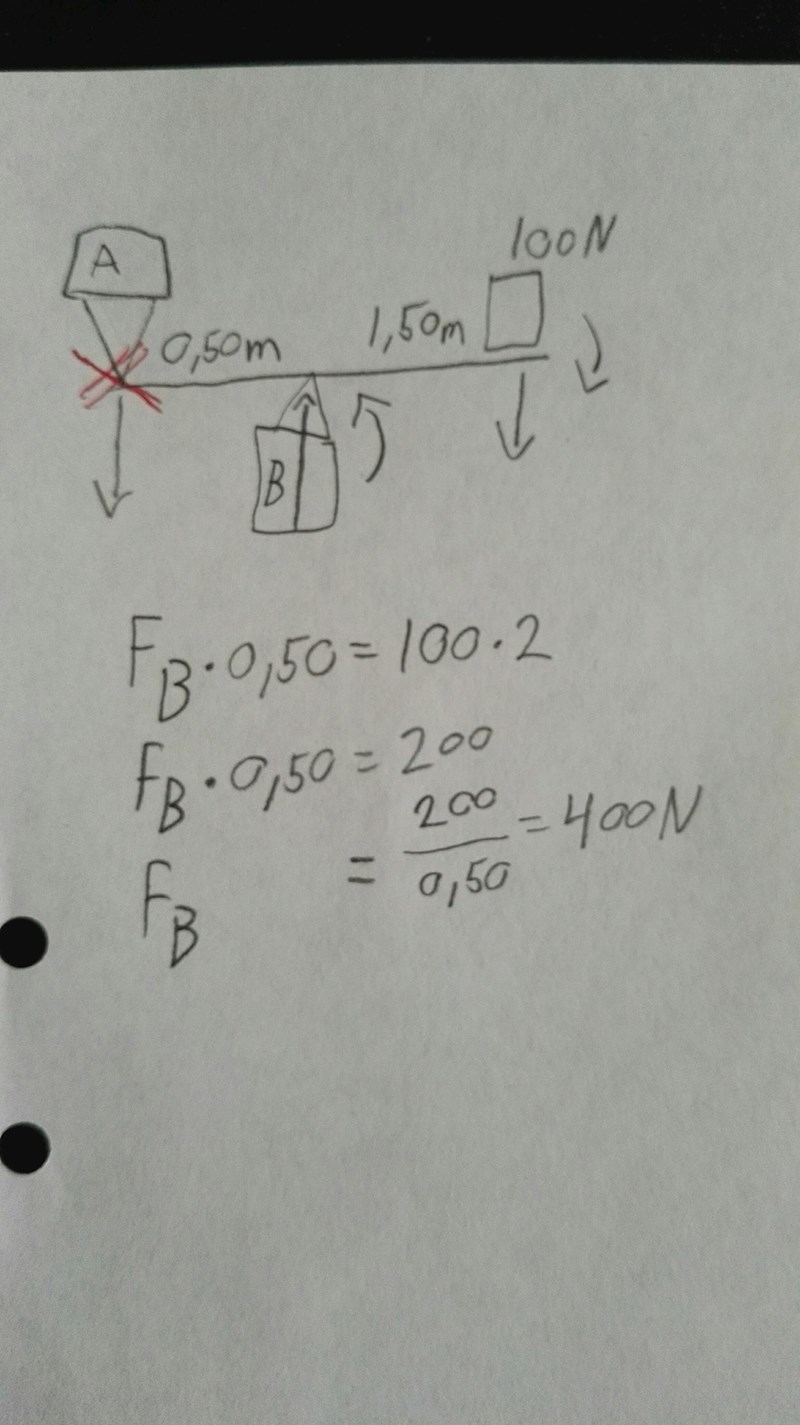 100N
A
0,50m 1,50m
B
F_B · 0,50 = 100 · 2
F_B · 0,50 = 200
F_B = 200/0,50 = 400N